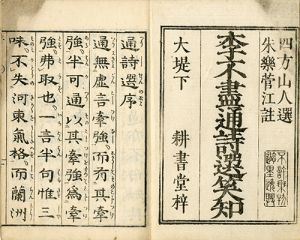 四方山人選
朱樂菅江註
李不盡通詩選笑知
大堤下 耕書堂梓
通詩選序
通無虚言牽強而有其牽
強半可通以其牽強為牽
強弗取也一言半句惟三
味不失河東氣格而蘭洲